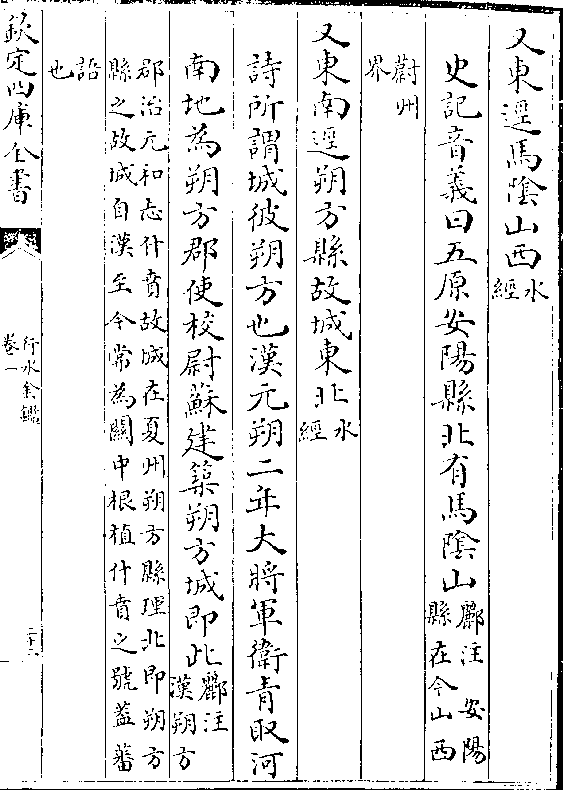 又東逕馬隂山西水經
史記音義曰五原安陽縣北有馬隂山酈注 安陽縣在今山西
蔚州界
又東南逕朔方縣故城東北水經
詩所謂城彼朔方也漢元朔二年大將軍衛青取河
南地為朔方郡使校尉蘇建築朔方城即此酈注漢朔方
郡治元和志什賁故城在夏州朔方縣理北即朔方
縣之故城自漢至今常為關中根植什賁之號葢蕃
語也
欽定四庫全書
行水金鑑
卷一